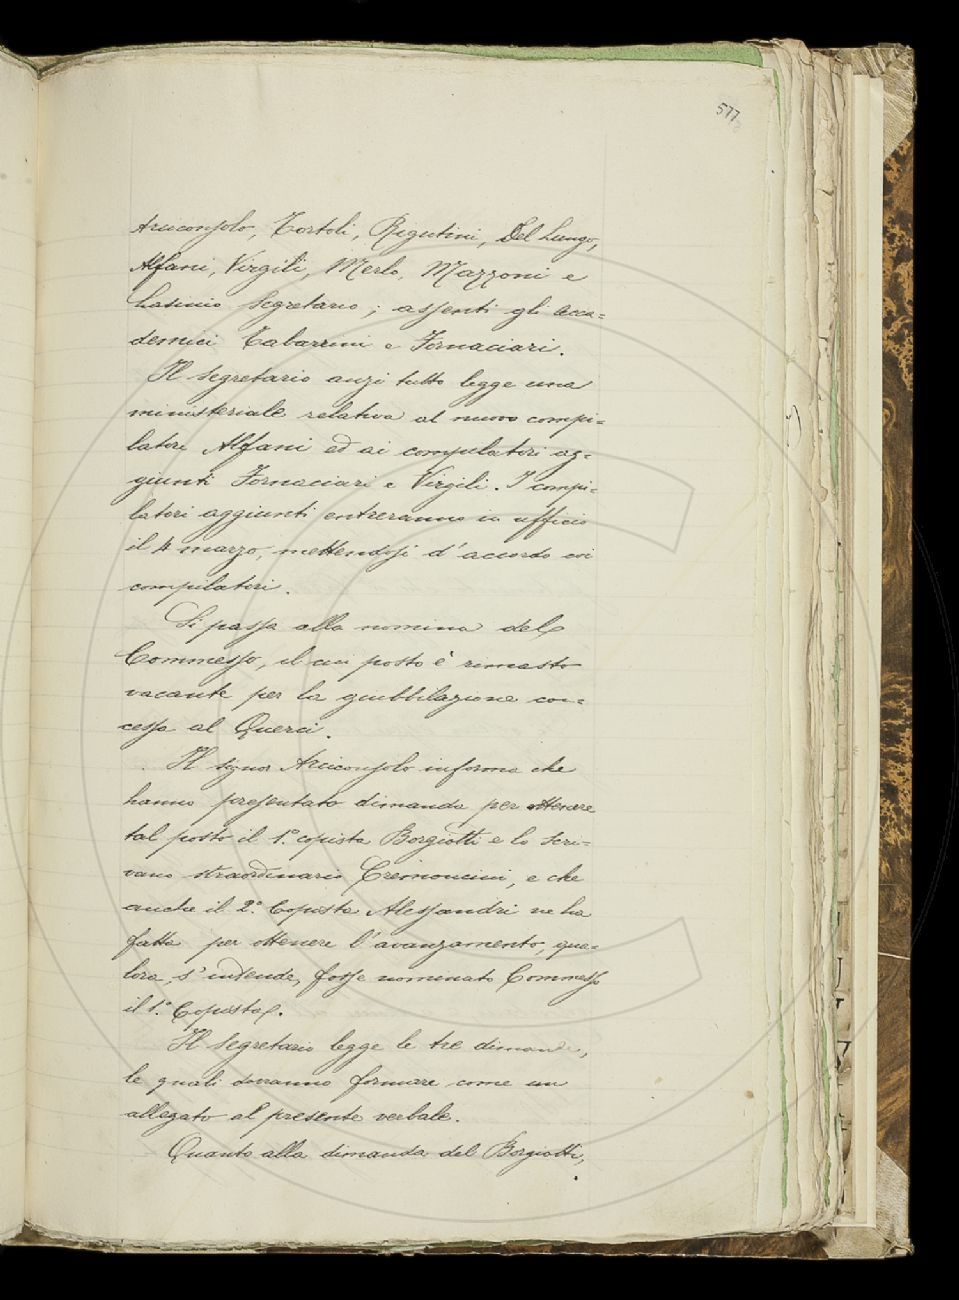 577
Arciconsolo, Tortoli, Rigutini, Del Lungo,
Alfani, Virgili, Merlo, Mazzoni e
Lasinio Segretario; assenti gli Acca=
demici Tabarrini e Fornaciari.
Il Segretario anzi tutto legge una
ministeriale relativa al nuovo compi=
latore Alfani ed ai compilatori ag=
giunti Fornaciari e Virgili. I compi=
latori aggiunti entreranno in ufficio
il 4 marzo, mettendosi d'accordo coi
compilatori.
Si passa alla nomina del
Commesso, il cui posto è rimasto
vacante per la giubbilazione con=
cessa al Querci.
Il signor Arciconsolo informa che
hanno presentato dimanda per ottenere
tal posto il 1.° copista Borgiotti e lo scri=
vano straordinario Cremoncini, e che
anche il 2.° Copista Alessandri ne ha
fatta per ottenere l'avanzamento, qua=
lora, s'intende, fosse nominato Commesso
il 1.° Copista.
Il Segretario legge le tre dimande,
le quali dovranno formare come un
allegato al presente verbale.
Quanto alla dimanda del Borgiotti,